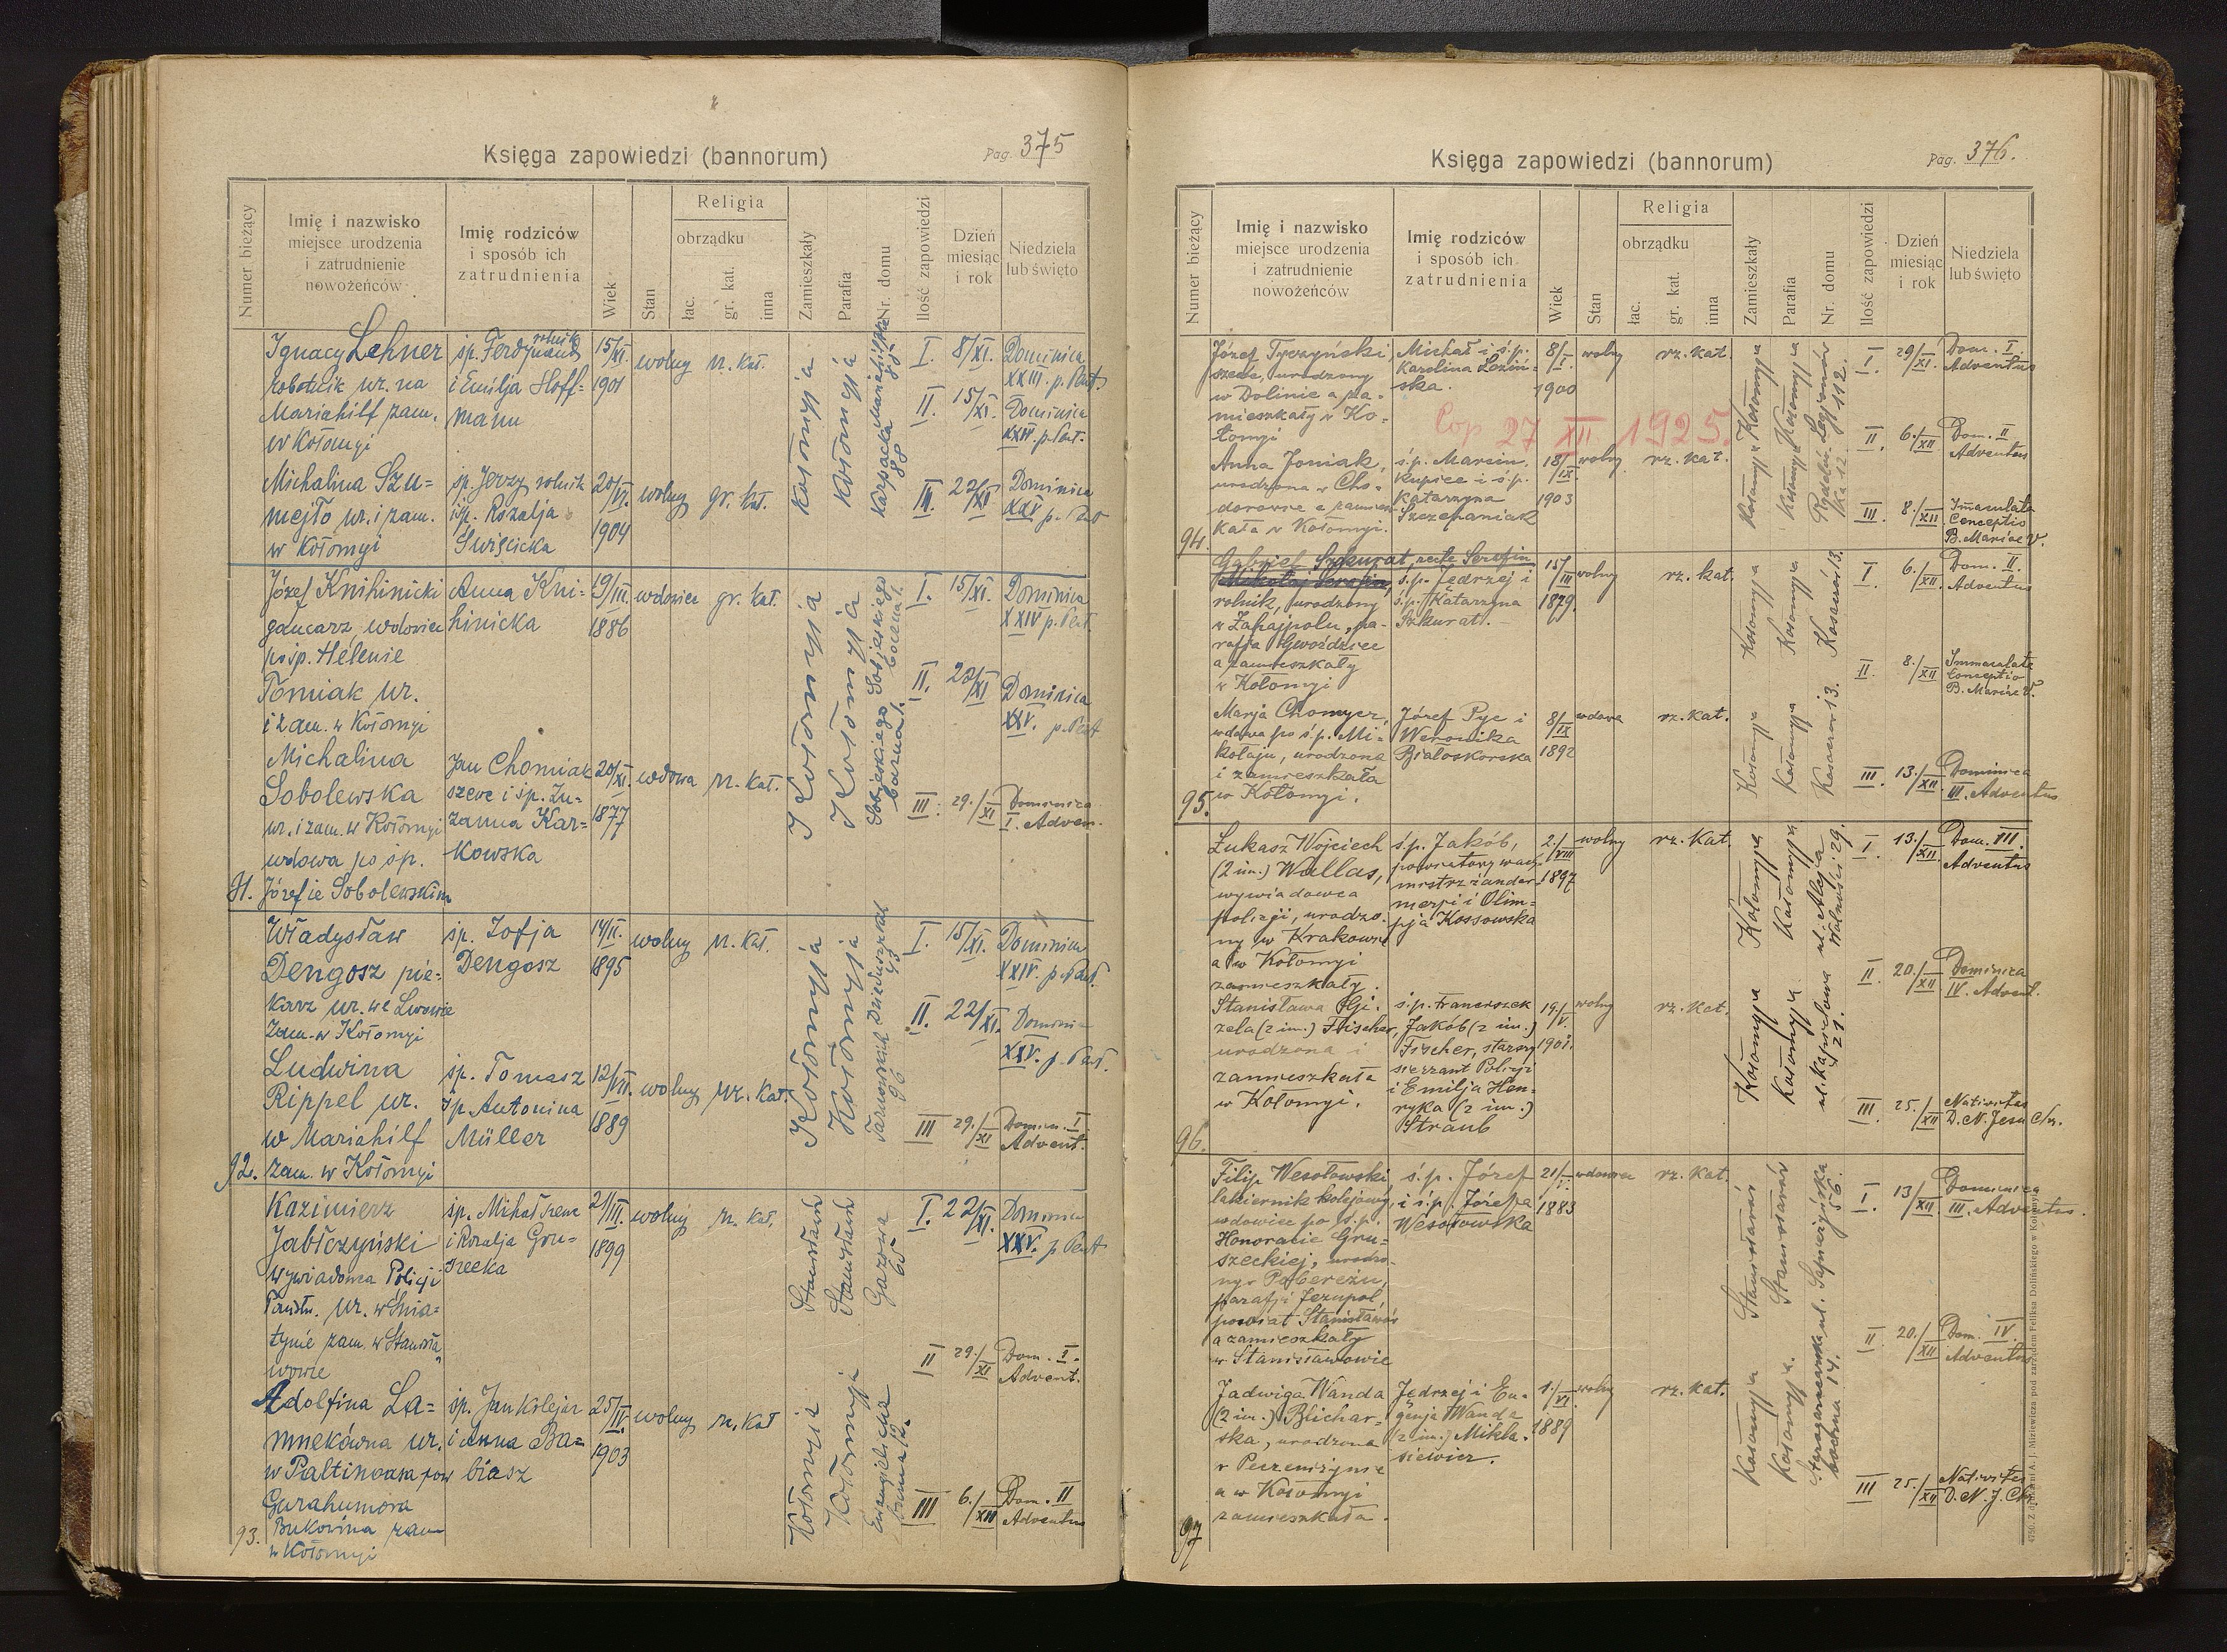 Księga zapowiedzi (bannorum)
Pag. 375
Numer bieżący
Imię i nazwisko
miejsce urodzenia
i zatrudnienie
nowożeńców
Imię rodziców
i sposób ich
zatrudnienia
Wiek
Stan
Religia
obrządku
łac.
gr. kat.
inna
Zamieszkały
Parafia
Nr. domu
Ilość zapowiedzi
Dzień
miesiąc
i rok
Niedziela
lub święto
Ignacy Lehner
robotnik ur. na
Mariahilf zam.
w Kołomyi
sp. Ferdynand rolnik
i Emilja Hoff-
mann
15/XI. 1901
wolny
rz. kat.
Kołomyja
Kołomyja
Mariahilf 85
I. 8/XI. Dominica
XXIII. p. Pent.
II. 15/XI. Dominica
XXIV. p. Pent.
Michalina Szu=
mejło ur. i zam.
w Kołomyi
sp. Jerzy rolnik
i sp. Rozalja
Świścicka
20/VI. 1904
wolny
gr. kat.
Karpacka 88
III. 22/XI Dominica
XXV p. Pent
Józef Knihinicki
garncarz, wdowiec
po sp. Helenie
Tomiak ur.
i zam. w Kołomyi
Anna Kni-
hinicka
19/III. 1886
wdowiec
gr. kat.
Kołomyja
Kołomyja
Sobieskiego
boczna 1.
I. 15/XI. Dominica
XXIV p. Pent.
II. 22/XI Dominica
XXV. p. Pent
Michalina
Sobolewska
ur. i zam. w Kołomyi
wdowa po sp.
91. Józefie Sobolewskim
Jan Chomiak
szewc i sp. Zu=
zanna Kar=
kowska
20/XI. 1877
wdowa
rz. kat.
Kołomyja
Kołomyja
Sobieskiego
boczna 1.
III. 29./XI Dominica
I. Adven.
Władysław
Dengosz pie-
karz ur. we Lwowie
zam. w Kołomyi
sp. Zofja
Dengosz
14/II. 1895
wolny
rz. kat.
Kołomyja
Kołomyja
Dzieduszycka 43
I. 15/XI. Dominica
XXIV. p. Pent.
II. 22/XI. Dominica
XXV. p. Pent.
Ludwina
Rippel ur.
w Mariahilf
92. zam. w Kołomyi
sp. Tomasz
sp. Antonina
Müller
12/VII. 1889
wolny
rz. kat.
96
III 29./XI Domin. I.
Advent.
Kazimierz
Jabłczyński
wywiadowca Policji
Państw. ur. w Śnia=
tynie zam. w Stanisła
wowie
sp. Michał szewc
i Rozalja Gru=
szecka
21/III. 1899
wolny
rz. kat.
Stanisławów
Stanisławów
Gazowa
I. 22/XI. Dominica
XXV. p. Pent
II 29./XI Dom. I.
Advent.
Adolfina La=
mnekówna ur.
w Paltinoasa pow
Gurahumora
Bukowina zam
93. w Kołomyi
sp. Jan Kolejarz
i Anna Ba=
biasz
25/IV. 1903
wolny
rz. kat
Kołomyja
Kołomyja
Ewangielicka
boczna 12.
III 6./XII Dom. II
Adventus
Księga zapowiedzi (bannorum)
Pag. 376.
Numer bieżący
Imię i nazwisko
miejsce urodzenia
i zatrudnienie
nowożeńców
Imię rodziców
i sposób ich
zatrudnienia
Wiek
Stan
Religia
obrządku
łac.
gr. kat.
inna
Zamieszkały
Parafia
Nr. domu
Ilość zapowiedzi
Dzień
miesiąc
i rok
Niedziela
lub święto
Józef Tyczyński
szewc, urodzony
w Dolinie a za-
mieszkały w Ko-
łomyi
Michał i ś. p.
Karolina Łoziń-
ska.
8/I. 1900
wolny
rz. kat.
Kołomyja
Kołomyja
Legjonów 112.
I. 29/XI. Dom. I.
Adventus
II. 6./XII Dom. II
Adventus
Cop. 27 XII. 1925.
Anna Joniak,
urodzona w Cho-
dorowie a zamiesz
94. kała w Kołomyi.
ś.p. Marcin,
kupiec i ś.p.
Katarzyna
Szczepaniak
18/IX. 1903
wolny
rz. kat.
Kołomyja
Kołomyja
III. 8./XII Immaculata
Conceptio
B. Mariae V.
Gabriel Szkurat, recte Serafin
rolnik, urodzony
w Zahajpolu, pa-
rafja Gwoździec
a zamieszkały
w Kołomyi
ś.p. Jędrzej i
ś.p. Katarzyna
Szkurat.
15/III 1879.
wolny
rz. kat.
Kołomyja
Kołomyja
Kosaczów 13.
I. 6./XII. Dom. II.
Adventus
II. 8./XII Immaculata
Conceptio
B. Mariae V.
Marja Chomycz,
wdowa po ś.p. Mi-
kołaju, urodzona
i zamieszkała
95. w Kołomyi.
Józef Pyc i
Weronika
Białoskórska
8/IX 1892
wdowa
rz. kat.
Kołomyja
Kołomyja
Kosaczów 13.
III. 13./XII. Dominica
III. Adventus
Łukasz Wojciech
(2 im.) Wallas,
wywiadowca
policji, urodzo-
ny w Krakowie
a w Kołomyi
zamieszkały.
ś.p. Jakób,
powiatowy wach-
mistrz żandar-
merji i Olim=
pja Kossowska
2./VIII 1897
wolny
rz. kat.
Kołomyja
Kołomyja
ul. Aleja
Wolności 29.
I. 13./XII. Dom. III.
Adventus
II. 20./XII Dominica
IV. Advent.
Stanisława Gi-
zela (2 im.) Fischer,
urodzona i
zamieszkała
w Kołomyi.
96.
ś.p. Franciszek
Jakób (2 im.)
Fischer, starszy
sierżant Policji
i Emilja Hen-
ryka (2 im.)
Straub
19./V. 1901.
wolny
rz. kat.
Kołomyja
Kołomyja
21.
III. 25./XII Nativitas
D. N. Jesu Chr.
Filip Wesołowski,
lakiernik kolejowy,
wdowiec po ś.p.
Honoracie Gru=
szeckiej, urodzo-
ny w Pobereżu,
parafji Jezupol,
powiat Stanisławów
a zamieszkały
w Stanisławowie
ś.p. Józef
i ś.p. Józefa
Wesołowska
21/I. 1883
wdowiec
rz. kat.
Stanisławów
Stanisławów
ul. Sapieżyńska
56.
I. 13/XII. Dominica
III. Adventus.
II 20./XII Dom. IV.
Adventus
Jadwiga Wanda
(2 im.) Blichar-
ska, urodzona
w Peczeniżynie
a w Kołomyi
zamieszkała.
97
Jędrzej i Eu-
genja Wanda
(2 im.) Mikla-
siewicz.
1./VI. 1889
wolny
rz. kat.
Kołomyja
Kołomyja.
boczna 14.
III 25./XII Nativitas
D. N. J. Chr.
4750. Z drukarni A. J. Miziewicza pod zarządem Feliksa Dolińskiego w Kołomyi.